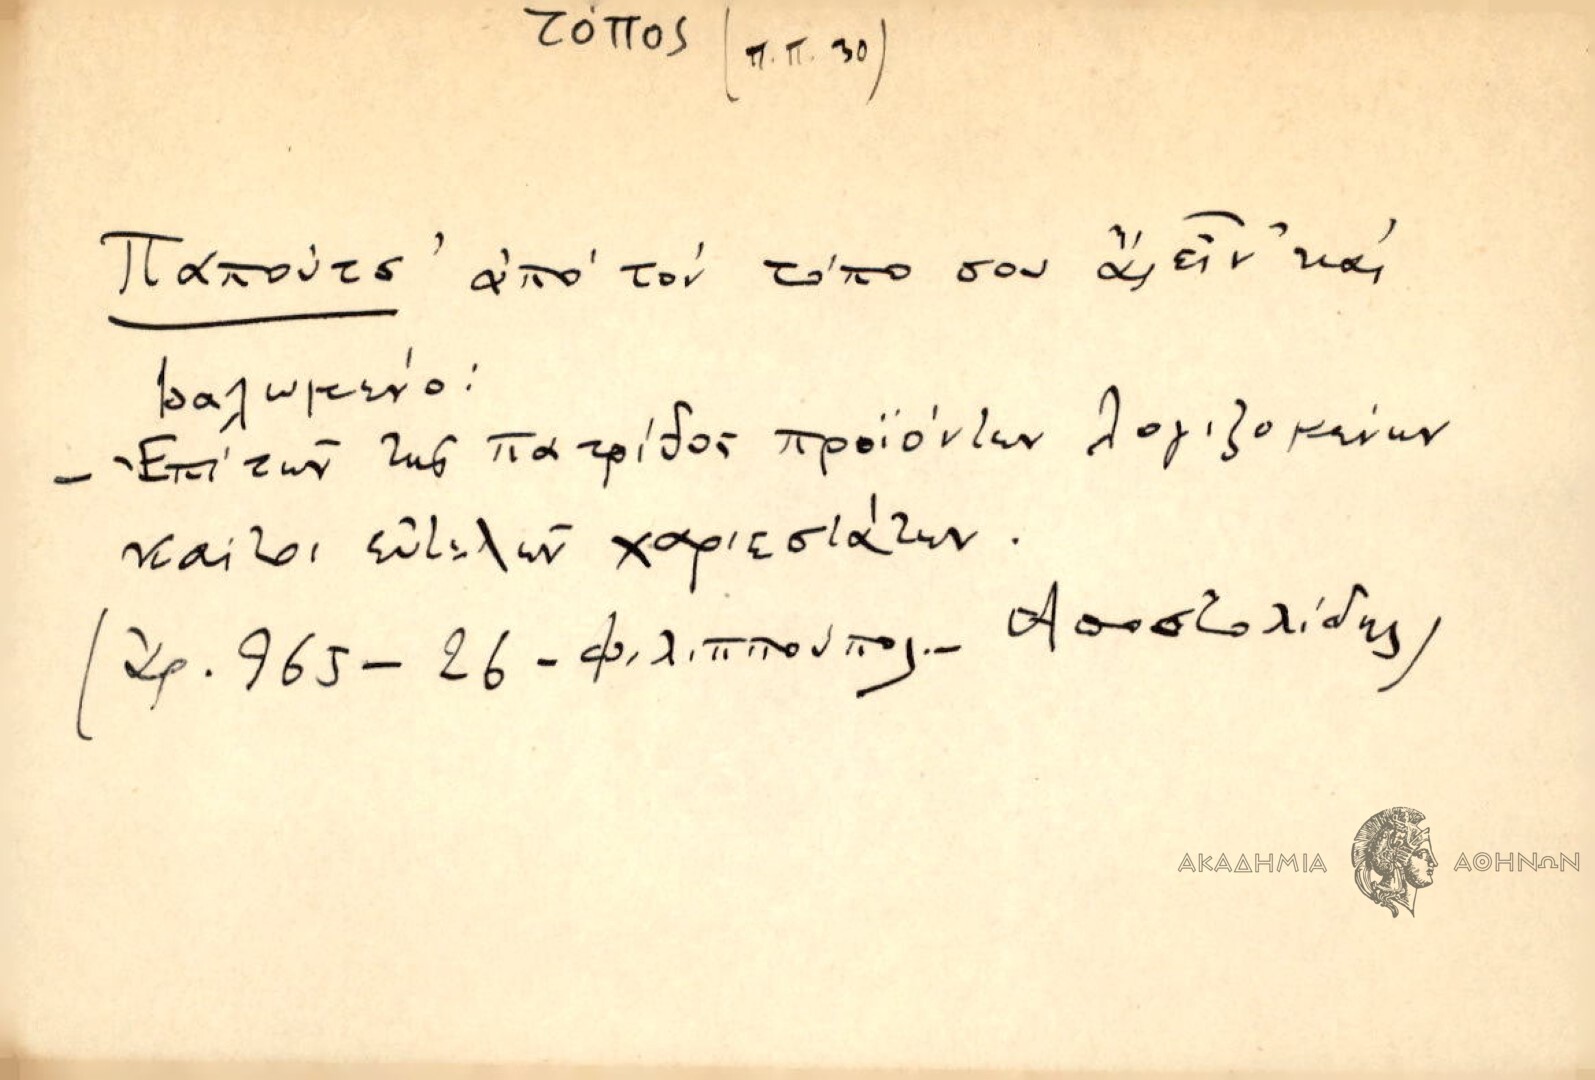 τόπος (π.π. 30)
Παπούτσ' ἀπό τόν τόπο σου ἄς εἶν' καί
βαλωμένο:
- Ἐπί τῶν τῆς πατρίδος προϊόντων λογιζομένων
καίτοι εὐτελῶν χαριεστάτων.
(Χρ. 965 - 26 - Φιλιππούπολ. - Αποστολίδης)
ΑΚΑΔΗΜΙΑ ΑΘΗΝΩΝ